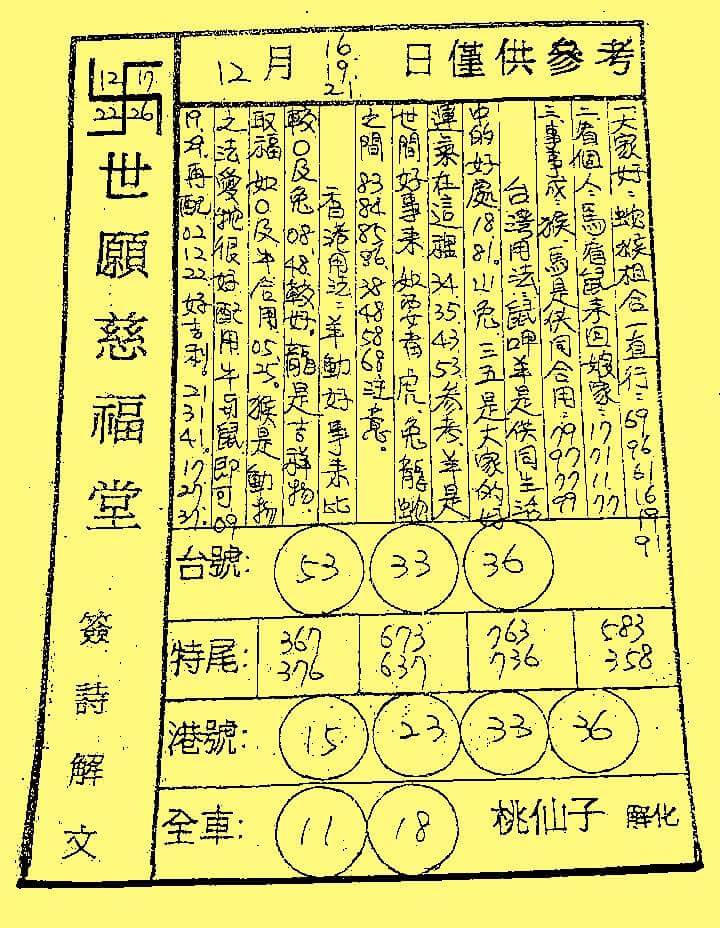 12月 16 19 21 日僅供參考
12 17
22 26
世願慈福堂
簽詩解文
一大家好:蛇猴相合一直行:69 96 61 16 19 91
二看個人:馬宿鼠來回娘家:17 71 11 77
三事事成:猴、馬是供同合用:79 97 77 99
台灣用法:鼠呷羊是供同生活
中的好處18 81。山兔三五是大家的好
運氣在這裡34 35 43 53参考羊是
世間好事來如要看虎、兔龍蛇
之間83 84 85 86、38 48 58 68注意。
香港用法:羊動好事來比
較O及兔08 48、較好。龍是吉祥物。
取福如O及牛合用05 25。猴是動物
之法愛拋很好配用牛與鼠即可09
19、29、再配02 12 22好吉利。21 31 41。17 27 37。
台號: 53 33 36
特尾: 367 673 763 583
376 637 736 358
港號: 15 23 33 36
全車: 11 18 桃仙子 解化